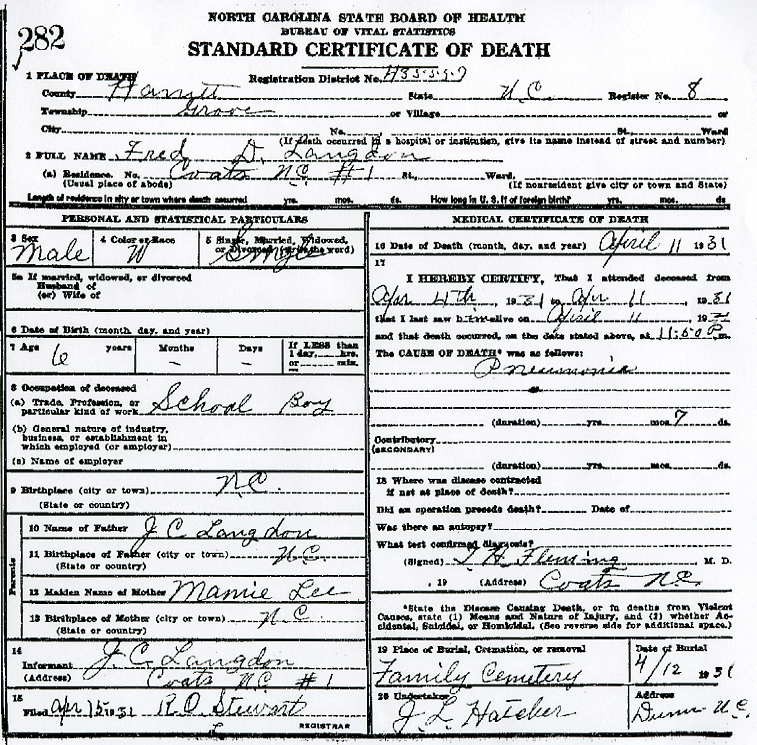 NORTH CAROLINA STATE BOARD OF HEALTH
BUREAU OF VITAL STATISTICS
STANDARD CERTIFICATE OF DEATH
282
1 PLACE OF DEATH
Registration District No. 435-5597
County Harnett State N.C. Register No. 8
Township Grove or Village or
City No. St., Ward
(If death occurred in a hospital or institution, give its name instead of street and number)
2 FULL NAME Fred D. Langdon
(a) Residence. No. Coats N.C. #1 St., Ward.
(Usual place of abode) (If nonresident give city or town and State)
Length of residence in city or town where death occurred yrs. mos. ds. How long in U. S. if of foreign birth? yrs. mos. ds.
PERSONAL AND STATISTICAL PARTICULARS
3 Sex Male
4 Color or Race W
5 Single, Married, Widowed, or Divorced (write the word) Single
5a If married, widowed, or divorced
Husband of
(or) Wife of
6 Date of Birth (month, day, and year)
7 Age 6 years Months – Days –
If LESS than
1 day, hrs.
or min.
8 Occupation of deceased
(a) Trade, Profession, or
particular kind of work School Boy
(b) General nature of industry,
business, or establishment in
which employed (or employer)
(c) Name of employer
9 Birthplace (city or town) N.C.
(State or country)
Parents
10 Name of Father J C Langdon
11 Birthplace of Father (city or town) N.C.
(State or country)
12 Maiden Name of Mother Mamie Lee
13 Birthplace of Mother (city or town) N.C.
(State or country)
14
Informant J. C. Langdon
(Address) Coats N.C. #1
15
Filed Apr 15 1931 R. O. Stewart
REGISTRAR
MEDICAL CERTIFICATE OF DEATH
16 Date of Death (month, day, and year) April 11 1931
17
I HEREBY CERTIFY, That I attended deceased from
Apr 4th, 1931 to Apr 11, 1931
that I last saw him alive on April 11, 1931
and that death occurred, on the date stated above, at 11:50 P.m.
The CAUSE OF DEATH* was as follows:
Pneumonia
(duration) yrs. mos. 7 ds.
Contributory
(SECONDARY)
(duration) yrs. mos. ds.
18 Where was disease contracted
if not at place of death?
Did an operation precede death? Date of
Was there an autopsy?
What test confirmed diagnosis?
(Signed) Fleming M. D.
, 19 (Address) Coats N.C.
*State the Disease Causing Death, or in deaths from Violent
Causes, state (1) Means and Nature of Injury, and (2) whether Ac-
cidental, Suicidal, or Homicidal. (See reverse side for additional space.)
19 Place of Burial, Cremation, or removal
Family Cemetery
Date of Burial
4/12 1931
20 Undertaker
J. L. Hatcher
Address
Dunn N.C.